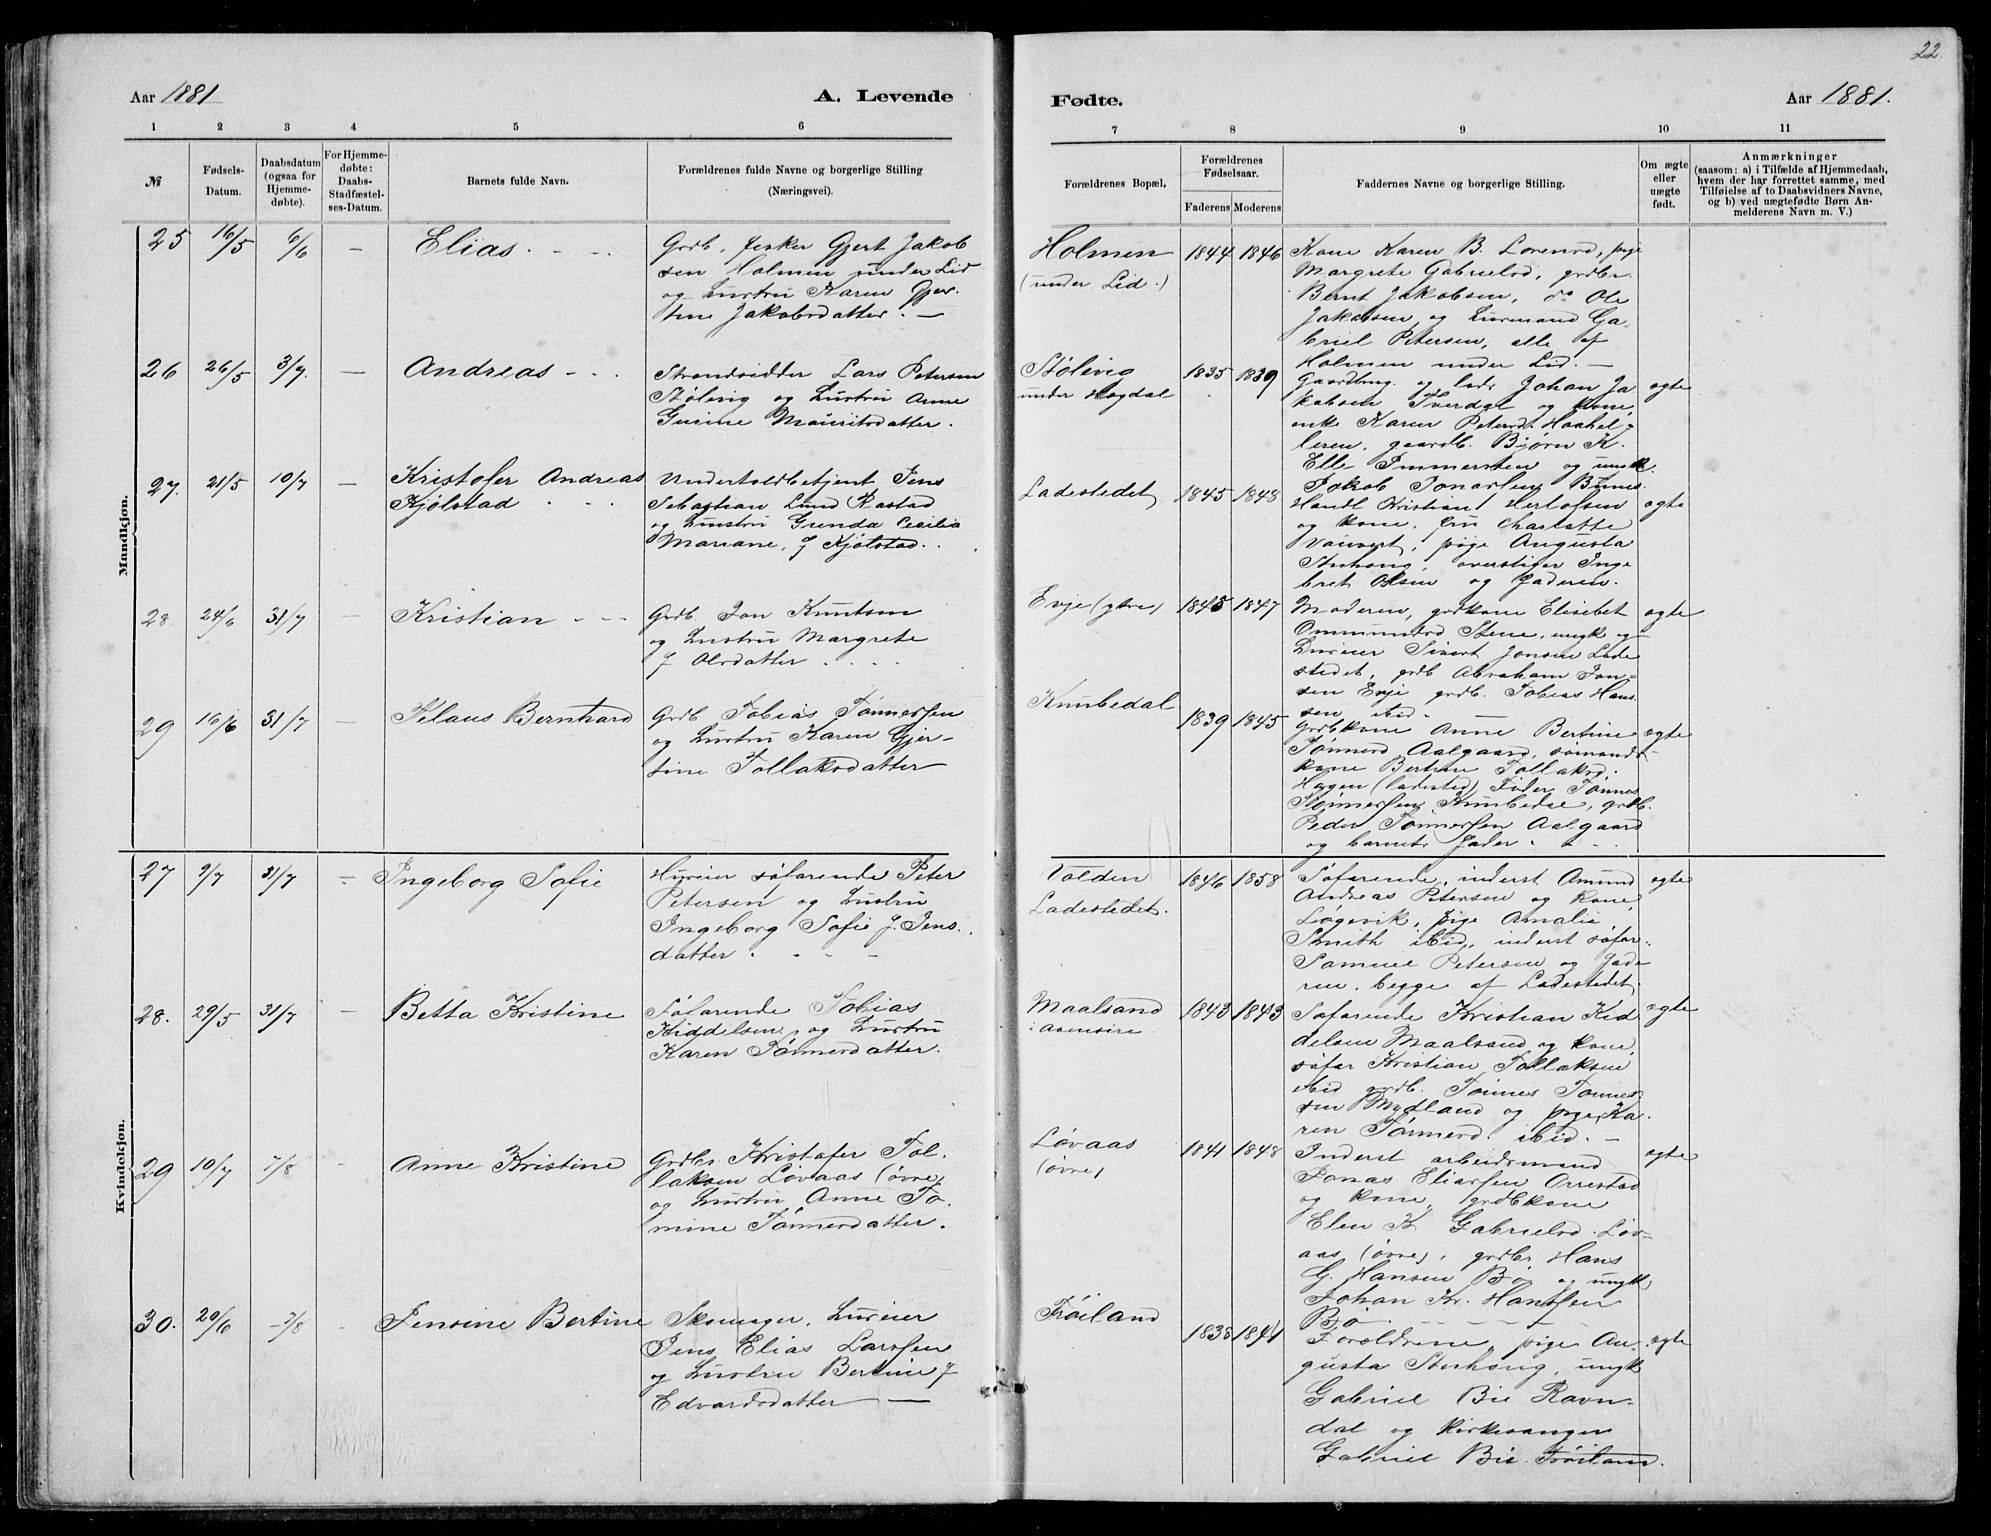 22.
Aar 1881
A. Levende
Fødte.
Aar 1881.
1 2 3 4 5 6
7 8 9 10 11
№
Fødsels-
Datum.
Daabsdatum
(ogsaa for
Hjemme-
døbte).
For Hjemme-
døbte:
Daabs-
Stadfæstel-
ses-Datum.
Barnets fulde Navn.
Forældrenes fulde Navne og borgerlige Stilling
(Næringsvei).
Forældrenes Bopæl.
Forældrenes
Fødselsaar.
Faderens Moderens
Faddernes Navne og borgerlige Stilling.
Om ægte
eller
uægte
født.
Anmærkninger
(saasom: a) i Tilfælde af Hjemmedaab,
hvem der har forrettet samme, med
Tilføielse af to Daabsvidners Navne,
og b) ved uægtefødte Børn An-
melderens Navn m. V.)
Mandkjøn.
25 16/5 6/6 — Elias
Grdb. fisker Gjert Jakob
sen Holmen under Lid
og Hustru Karen Gjer
tine Jakobsdatter. —
Holmen
(under Lid.)
1844 1846
Kone Karen B. Lorensd, pige
Margrete Gabrielsd, grdbr.
Bernt Jakobsen, do Ole
Jakobsen og Huusmand Ga-
briel Petersen, alle af
Holmen under Lid. —
26 26/5 3/7. — Andreas
Strandsidder Lars Petersen
Stølevig og Hustru Anne
Gurine Mauritsdatter.
Stølevig
under Hogdal
1835 1839
Gaardbrug. og lods Johan Ja
kobsen Tverdal og kone,
enke Karen Petersd. Haahel-
leren, gaardb. Bjørn K.
Elle og ungk.
Jakob
ægte
27. 21/5 10/7 — Kristofer Andreas
Kjølstad
Undertoldbetjent Jens
Sebastian Lund Rastad
og Hustru Gunda Cecilia
Mariane, f Kjølstad.
Ladestedet
1845 1848
Handl Kristian Herlofsen
og kone, fru Charlotte
pige Augusta
Stuhoug, overstifer Inge
bret Olsen og Faderen.
ægte
28. 24/6 31/7 — Kristian
Grdb Jon Knutsen
og Hustru Margrete
f Olsdatter
Evje (ytre)
1845 1847
Moderen, grdkone Elisebet
Ommundsd Stene, ungk og
Huseier Sivert Jonsen Lade
stedet, grdb Abraham Jon-
sen Evje grdb. Tobias Hans
sen ibid.
ægte
29 16/6 31/7 — Bernhard
Grdb Tobias Tønnessen
og Hustru Karen Gjer-
tine Tollaksdatter
Knubedal
1839 1845
Grdbkone Anne Bertine
Tønnesd Aalgaard, sømands-
kone Bertine Tollaksd.
Hagen (ladested) Føder Tønnes
Tønnessen Knubedal, grdb.
Peder Tønnessen Aalgaard
og barnets Fader.
ægte
Kvindekjøn.
27 9/7 31/7 — Ingeborg Sofie
Huseier søfarende Peter
Petersen og Hustru
Ingeborg Sofie f. Jens.
datter
Volden
Ladestedet.
1846 1858
Søfarende, inderst Amund
Andreas Petersen og kone,
Løgevik, pige Amalie
Smith ibid, inderst søfar.
Samuel Petersen og Fade
ren, begge af Ladestedet.
ægte
28. 29/5 31/7 — Betta Kristine
Søfarende Tobias
Kiddelsen og Hustru
Karen Tønnesdatter.
Maalsand
1843 1843
Søfarende Kristian Kid
delsen Maalsand og kone,
søfar Kristian Tollaksen
ibid grdb. Tønnes Tønnes
sen Mydland og pige Ka.
ren Tønnesd. ibid. —
ægte
29 10/7 7/8 Anne Kristine
Grdbr Kristofer Tol
laksen Løvaas (øvre)
og Hustru Anne To
mine Tønnesdatter.
Løvaas
(øvre)
1841 1848
Inderst arbeidsmand
Jonas Eliassen Orrestad
og kone, grdbkone
Elen K Gabrielsd. Løv-
aas (øvre), grdbr. Hans
G. Hansen Bø og ungk
Johan Kr. Hanssen
Bø.
ægte
30. 20/6 7/8 Jensine Bertine
Skomager, Huseier
Jens Elias Larssen
og Hustru Bertine f
Edvardsdatter —
Frøiland
1838 1841
Forældrene, pige Au-
gusta Stuhoug, ungk
Gabriel Bie Ravn-
dal og kirkesanger
Gabriel Bie Frøiland.
ægte